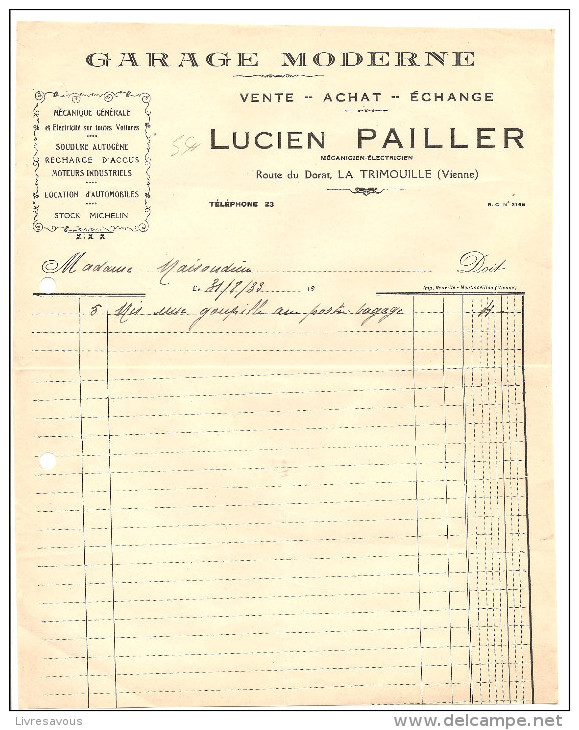 GARAGE MODERNE
VENTE -- ACHAT -- ÉCHANGE
MÉCANIQUE GÉNÉRALE
et Électricité sur toutes Voitures
SOUDURE AUTOGÈNE
RECHARGE D'ACCUS
MOTEURS INDUSTRIELS
LOCATION D'AUTOMOBILES
STOCK MICHELIN
54
LUCIEN PAILLER
MÉCANICIEN-ÉLECTRICIEN
Route du Dorat, LA TRIMOUILLE (Vienne)
TÉLÉPHONE 23
R. C. N° 3146
Madame Doit
Le 31/8/33 19
5 Mis une goupille au porte bagage
Livresavous
delcampe.net